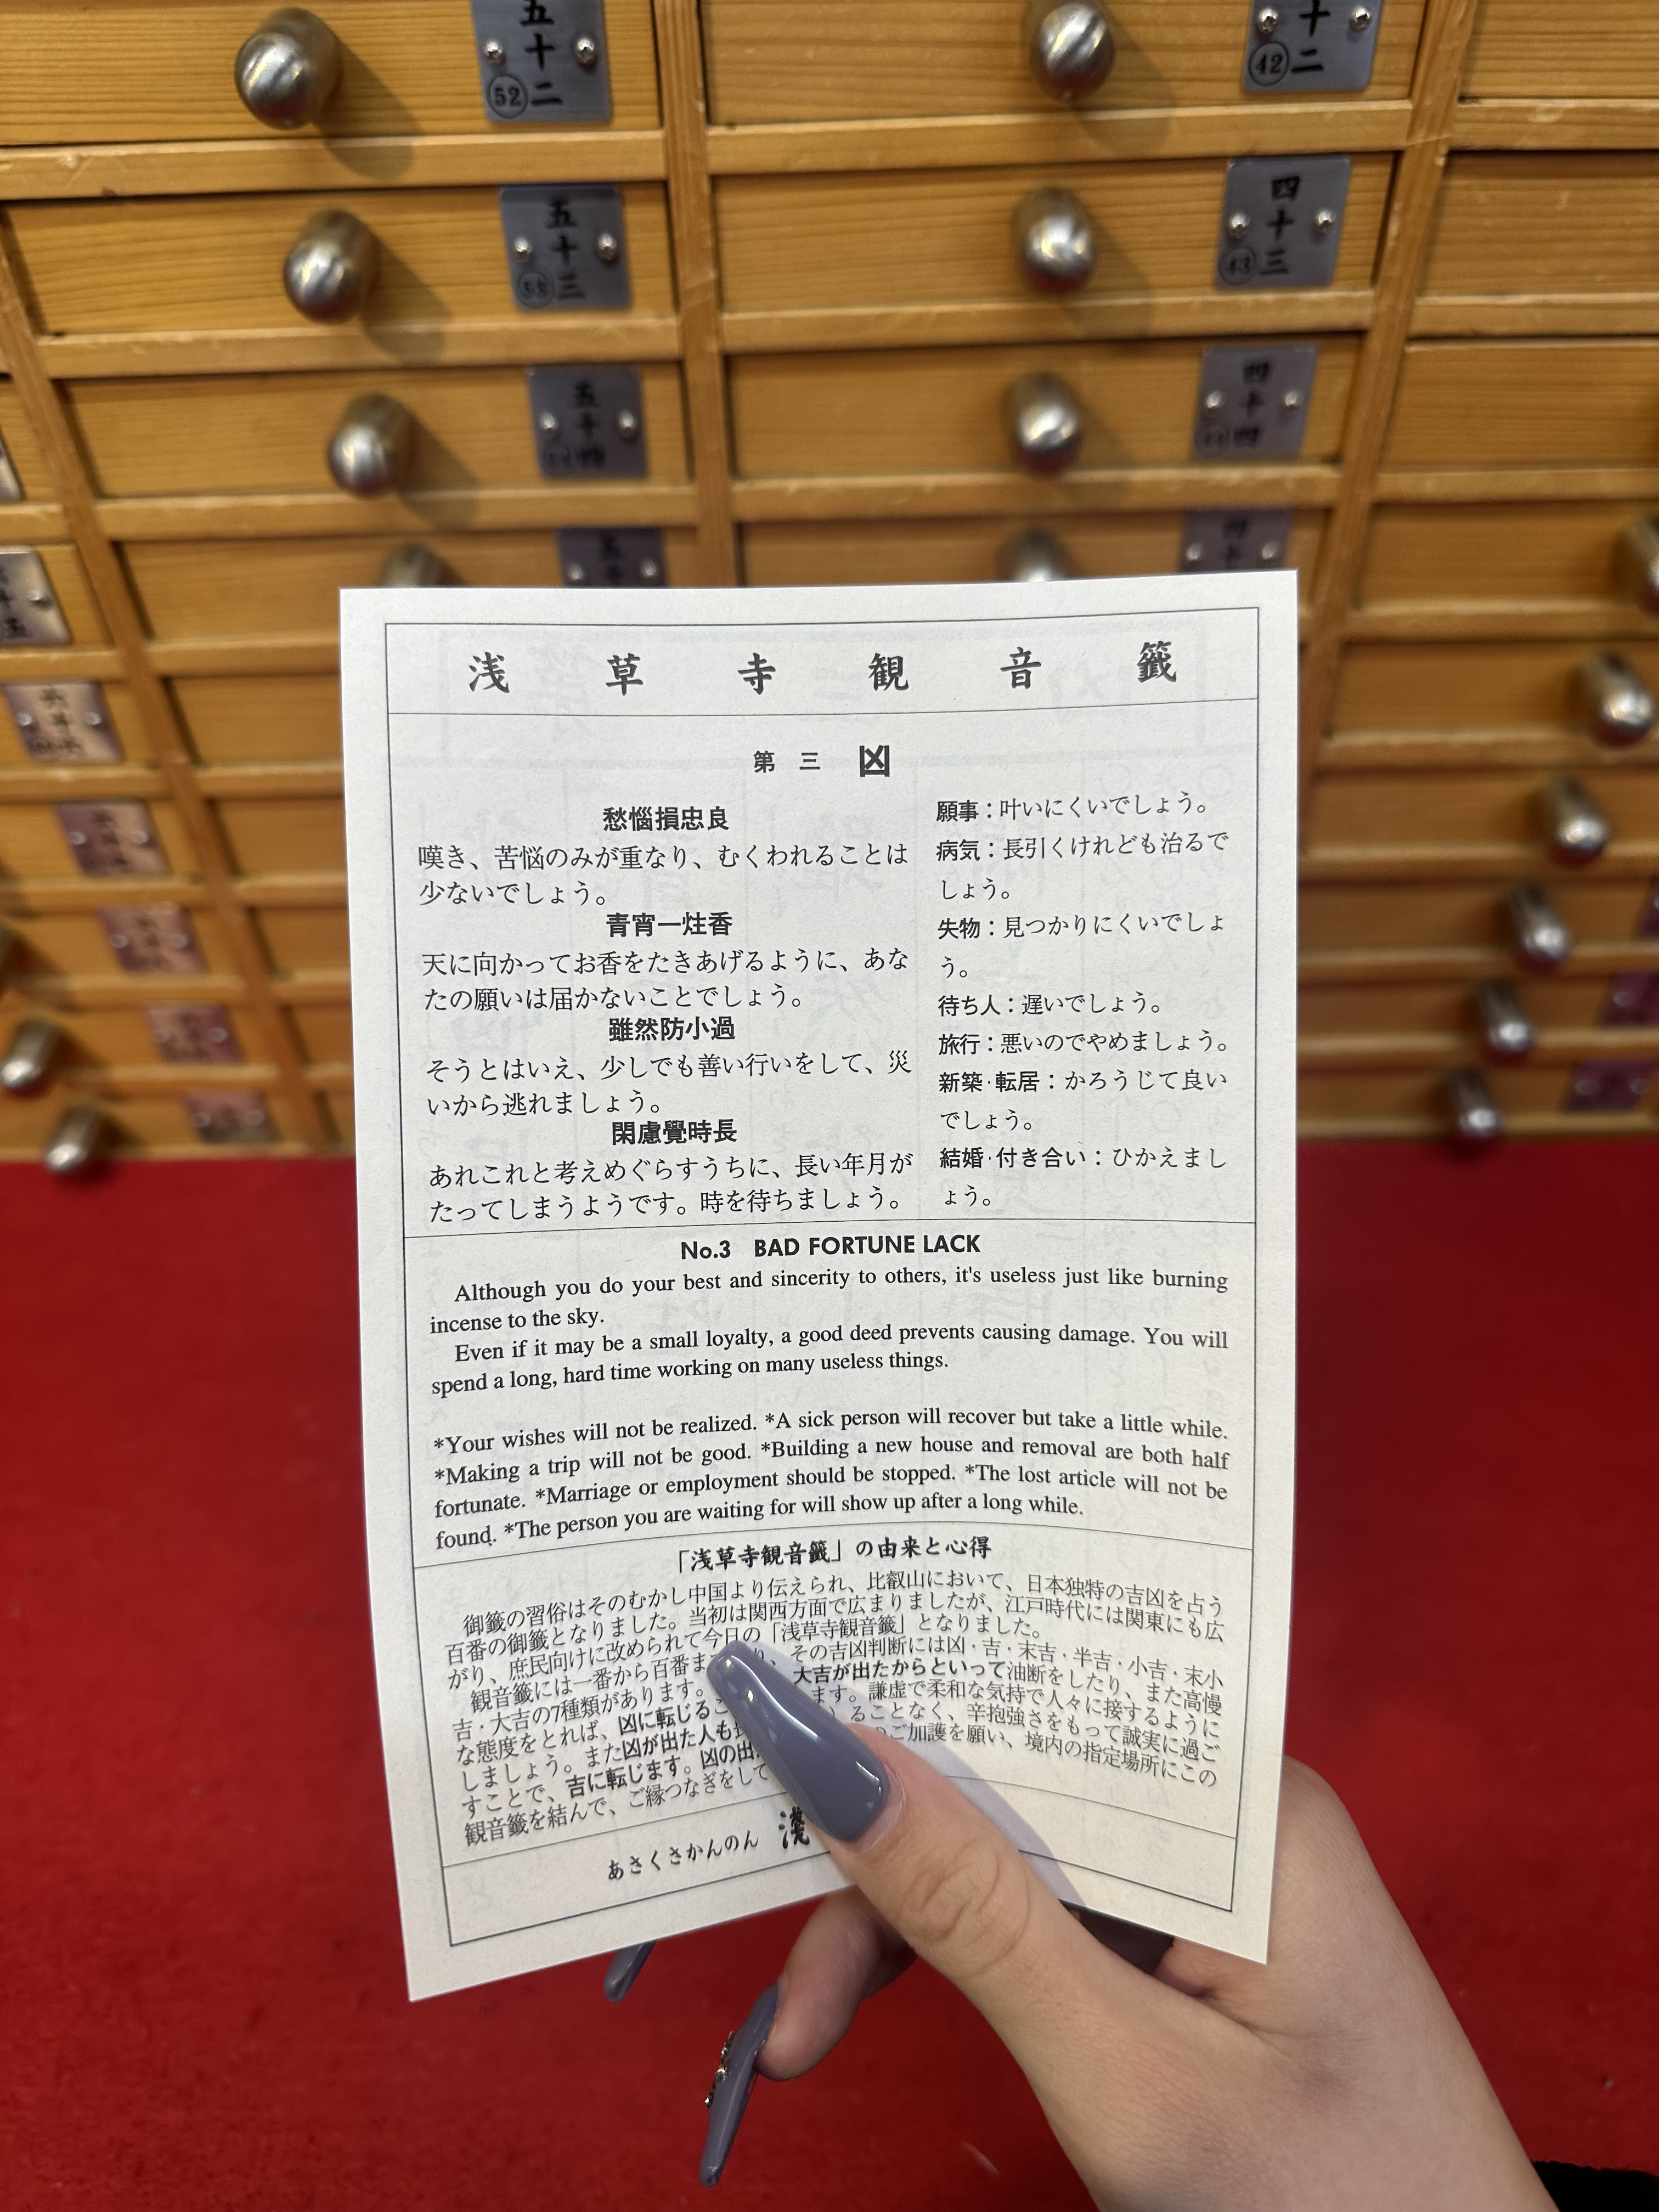 五十二
52
十二
42
五十三
53
四十三
43
五十四
四十四
浅草寺観音籤
第三 凶
愁惱損忠良
嘆き、苦悩のみが重なり、むくわれることは
少ないでしょう。
青宵一炷香
天に向かってお香をたきあげるように、あな
たの願いは届かないことでしょう。
雖然防小過
そうとはいえ、少しでも善い行いをして、災
いから逃れましょう。
閑慮覺時長
あれこれと考えめぐらすうちに、長い年月が
たってしまうようです。時を待ちましょう。
願事：叶いにくいでしょう。
病気：長引くけれども治るで
しょう。
失物：見つかりにくいでしょ
う。
待ち人：遅いでしょう。
旅行：悪いのでやめましょう。
新築·転居：かろうじて良い
でしょう。
結婚·付き合い：ひかえまし
ょう。
No.3 BAD FORTUNE LACK
Although you do your best and sincerity to others, it's useless just like burning
incense to the sky.
Even if it may be a small loyalty, a good deed prevents causing damage. You will
spend a long, hard time working on many useless things.
*Your wishes will not be realized. *A sick person will recover but take a little while.
*Making a trip will not be good. *Building a new house and removal are both half
fortunate. *Marriage or employment should be stopped. *The lost article will not be
found. *The person you are waiting for will show up after a long while.
「浅草寺観音籤」の由来と心得
御籤の習俗はそのむかし中国より伝えられ、比叡山において、日本独特の吉凶を占う
百番の御籤となりました。当初は関西方面で広まりましたが、江戸時代には関東にも広
がり、庶民向けに改められて今日の「浅草寺観音籤」となりました。
観音籤には一番から百番ま り、その吉凶判断には凶・吉・末吉・半吉・小吉・末小
吉・大吉の7種類があります。 大吉が出たからといって油断をしたり、また高慢
な態度をとれば、凶に転じるこ ます。謙虚で柔和な気持で人々に接するように
しましょう。また凶が出た人も ることなく、辛抱強さをもって誠実に過ご
すことで、吉に転じます。凶の出 のご加護を願い、境内の指定場所にこの
観音籤を結んで、ご縁つなぎをして
あさくさかんのん